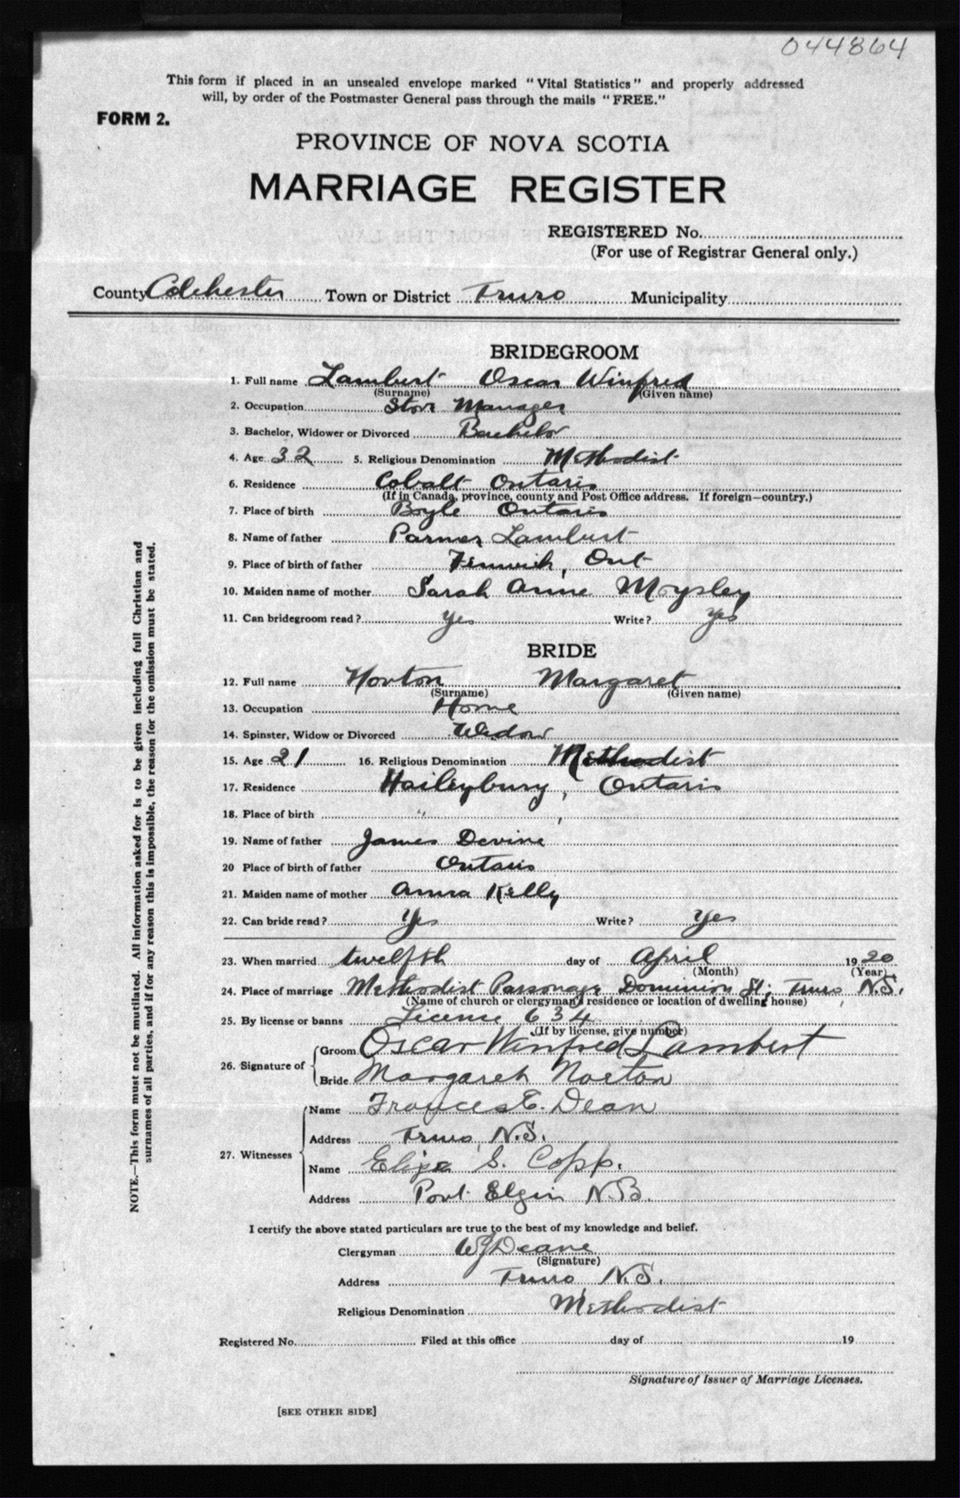 044864
This form if placed in an unsealed envelope marked "Vital Statistics" and properly addressed
will, by order of the Postmaster General pass through the mails "FREE."
FORM 2.
PROVINCE OF NOVA SCOTIA
MARRIAGE REGISTER
REGISTERED No.
(For use of Registrar General only.)
County Colchester Town or District Truro Municipality
BRIDEGROOM
1. Full name Lambert Oscar Winfred
(Surname) (Given name)
2. Occupation Store Manager
3. Bachelor, Widower or Divorced Bachelor
4. Age 32 5. Religious Denomination Methodist
6. Residence Cobalt Ontario
(If in Canada, province, county and Post Office address. If foreign—country.)
7. Place of birth Boyle Ontario
8. Name of father Parmer Lambert
9. Place of birth of father Fenwick, Ont
10. Maiden name of mother Sarah Anne Moysley
11. Can bridegroom read? Yes Write? Yes
BRIDE
12. Full name Norton Margaret
(Surname) (Given name)
13. Occupation Home
14. Spinster, Widow or Divorced Widow
15. Age 21 16. Religious Denomination Methodist
17. Residence Haileybury, Ontario
18. Place of birth " ,
19. Name of father James Devine
20 Place of birth of father Ontario
21. Maiden name of mother Anna Kelly
22. Can bride read? Yes Write? Yes
23. When married twelfth day of April 1920
(Month) (Year)
24. Place of marriage Methodist Parsonage Dominion St, Truro, N.S.
(Name of church or clergyman's residence or location of dwelling house)
25. By license or banns License 634
(If by license, give number)
26. Signature of Groom Oscar Winfred Lambert
Bride Margaret Norton
27. Witnesses Name Frances E. Dean
Address Truro, N.S.
Name Eliza S. Copp.
Address Port Elgin N.B.
I certify the above stated particulars are true to the best of my knowledge and belief.
Clergyman W J Deane
(Signature)
Address Truro N.S.
Religious Denomination Methodist
Registered No. Filed at this office day of 19
Signature of Issuer of Marriage Licenses.
[SEE OTHER SIDE]
NOTE.—This form must not be mutilated. All information asked for is to be given including full Christian and
surnames of all parties, and if for any reason this is impossible, the reason for the omission must be stated.